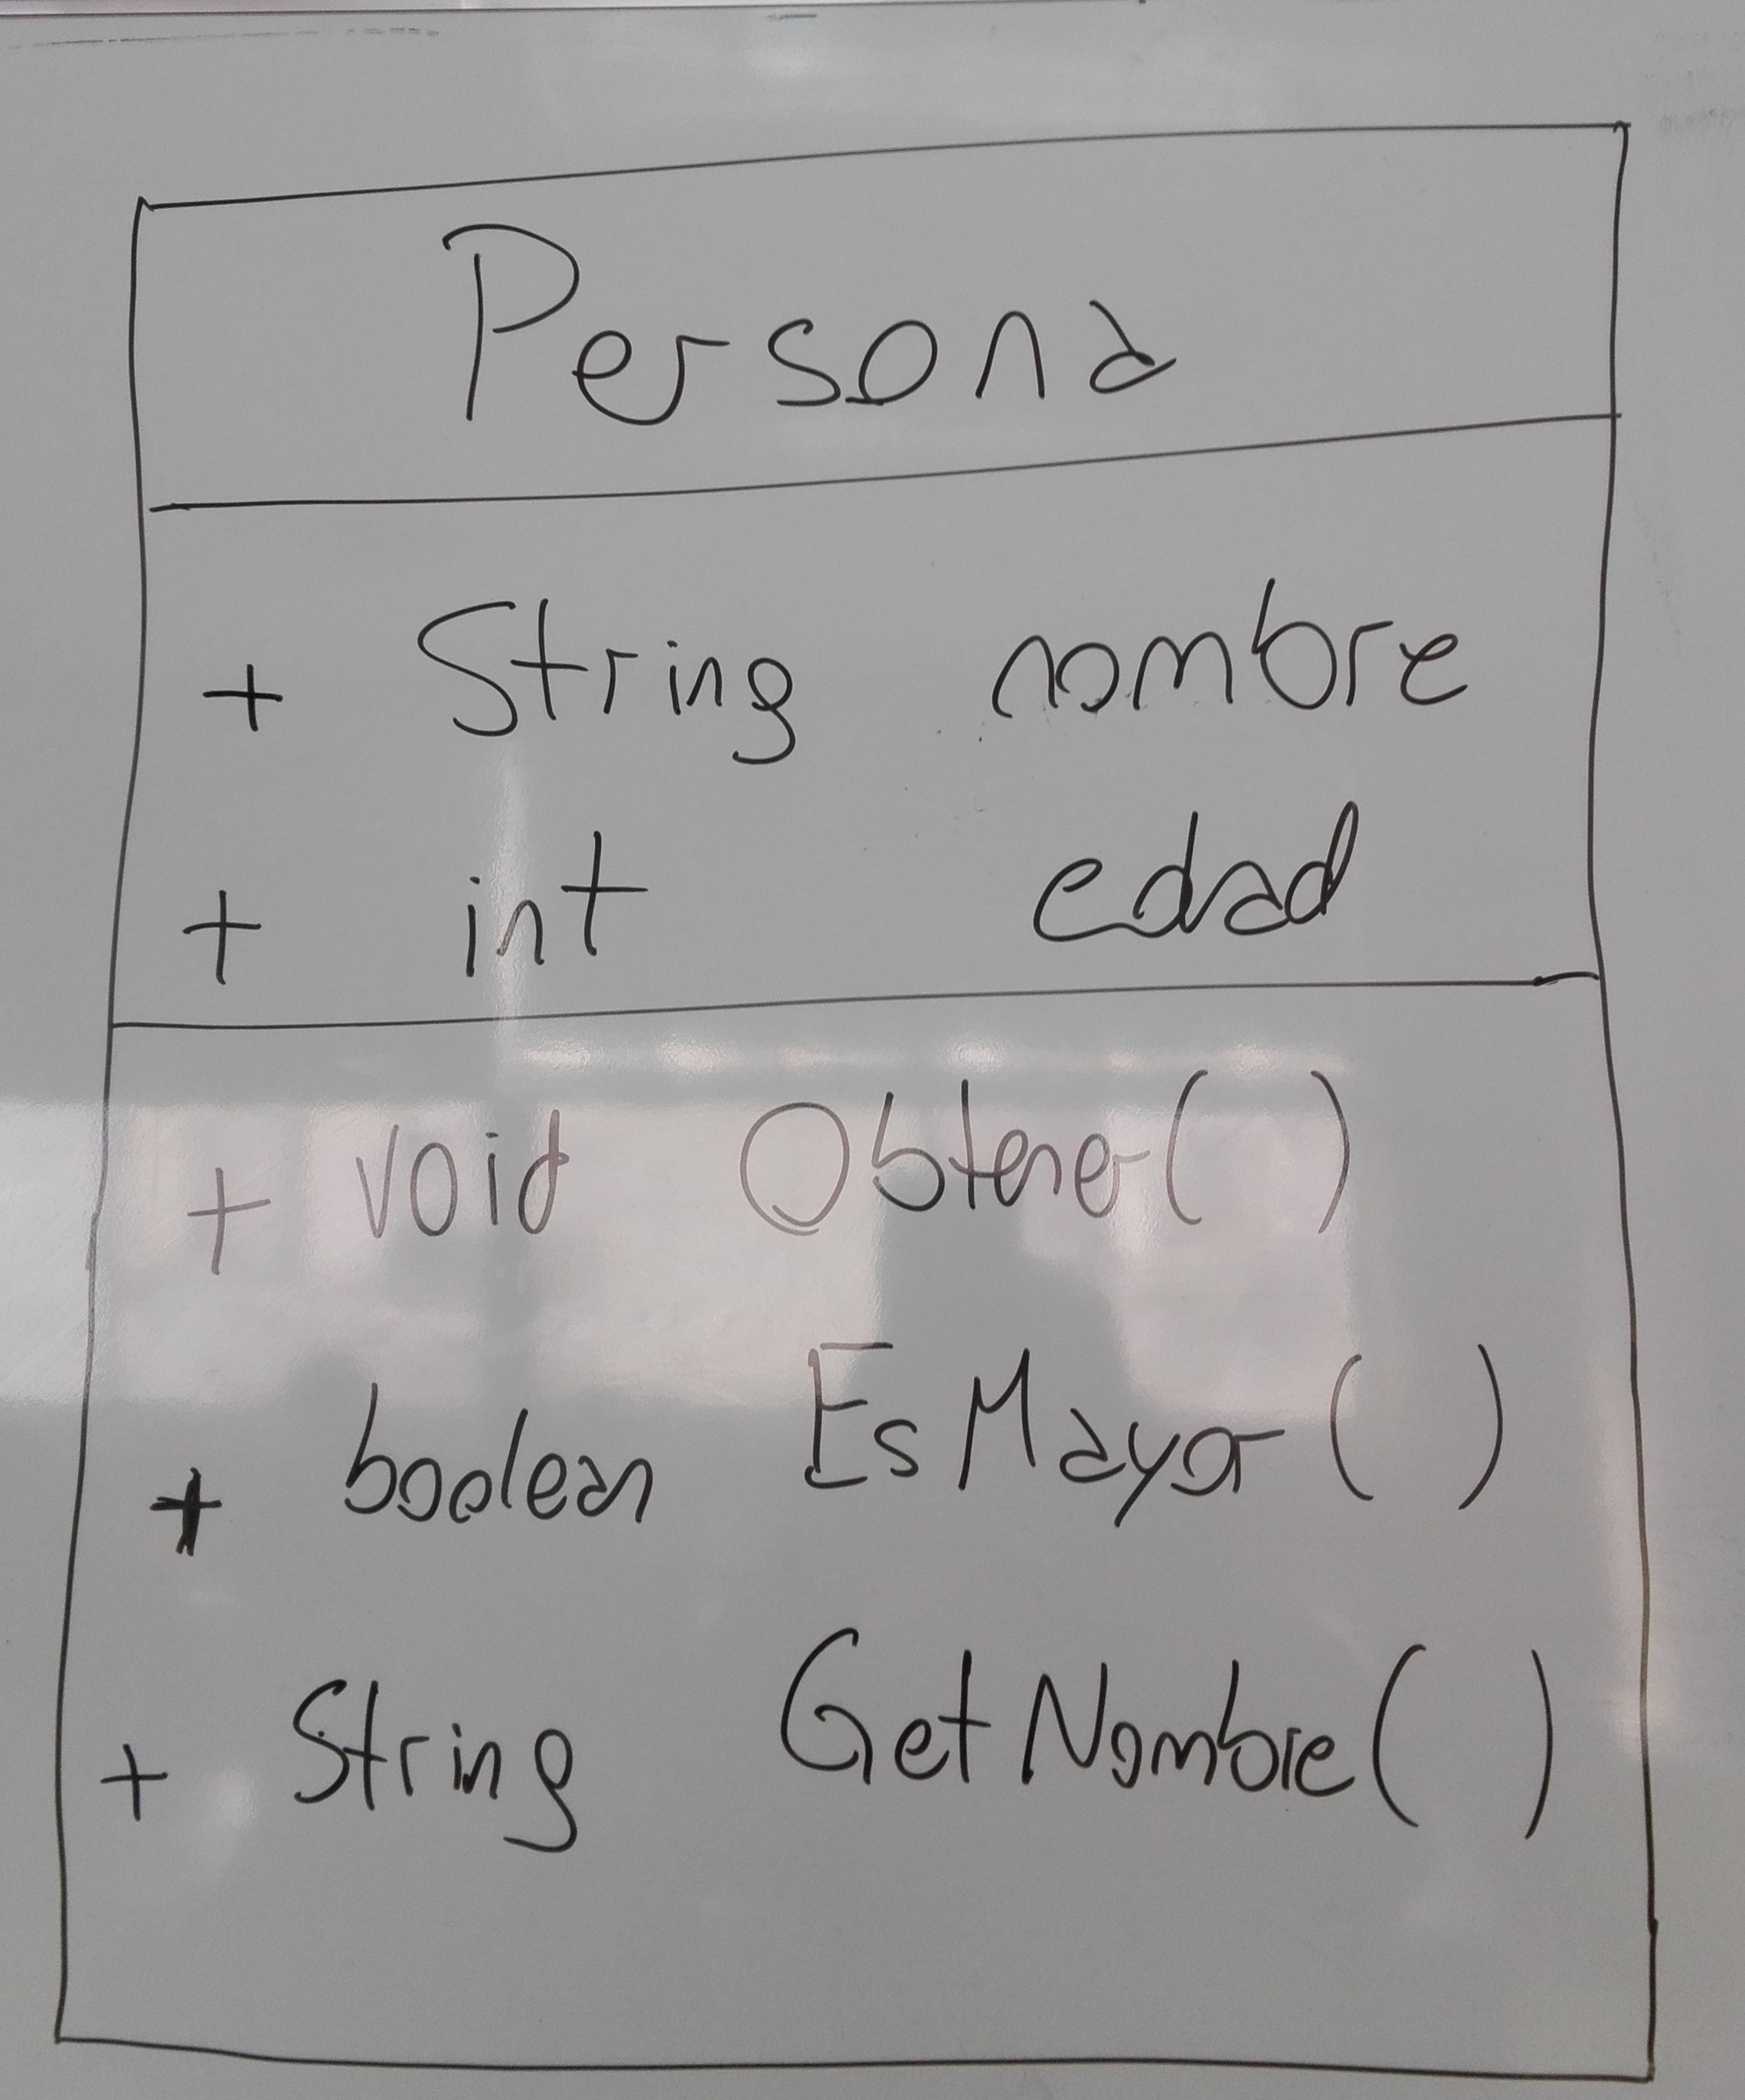 Persona
+ String nombre
+ int edad
+ void Obtener( )
+ boolean EsMayor( )
+ String GetNombre( )